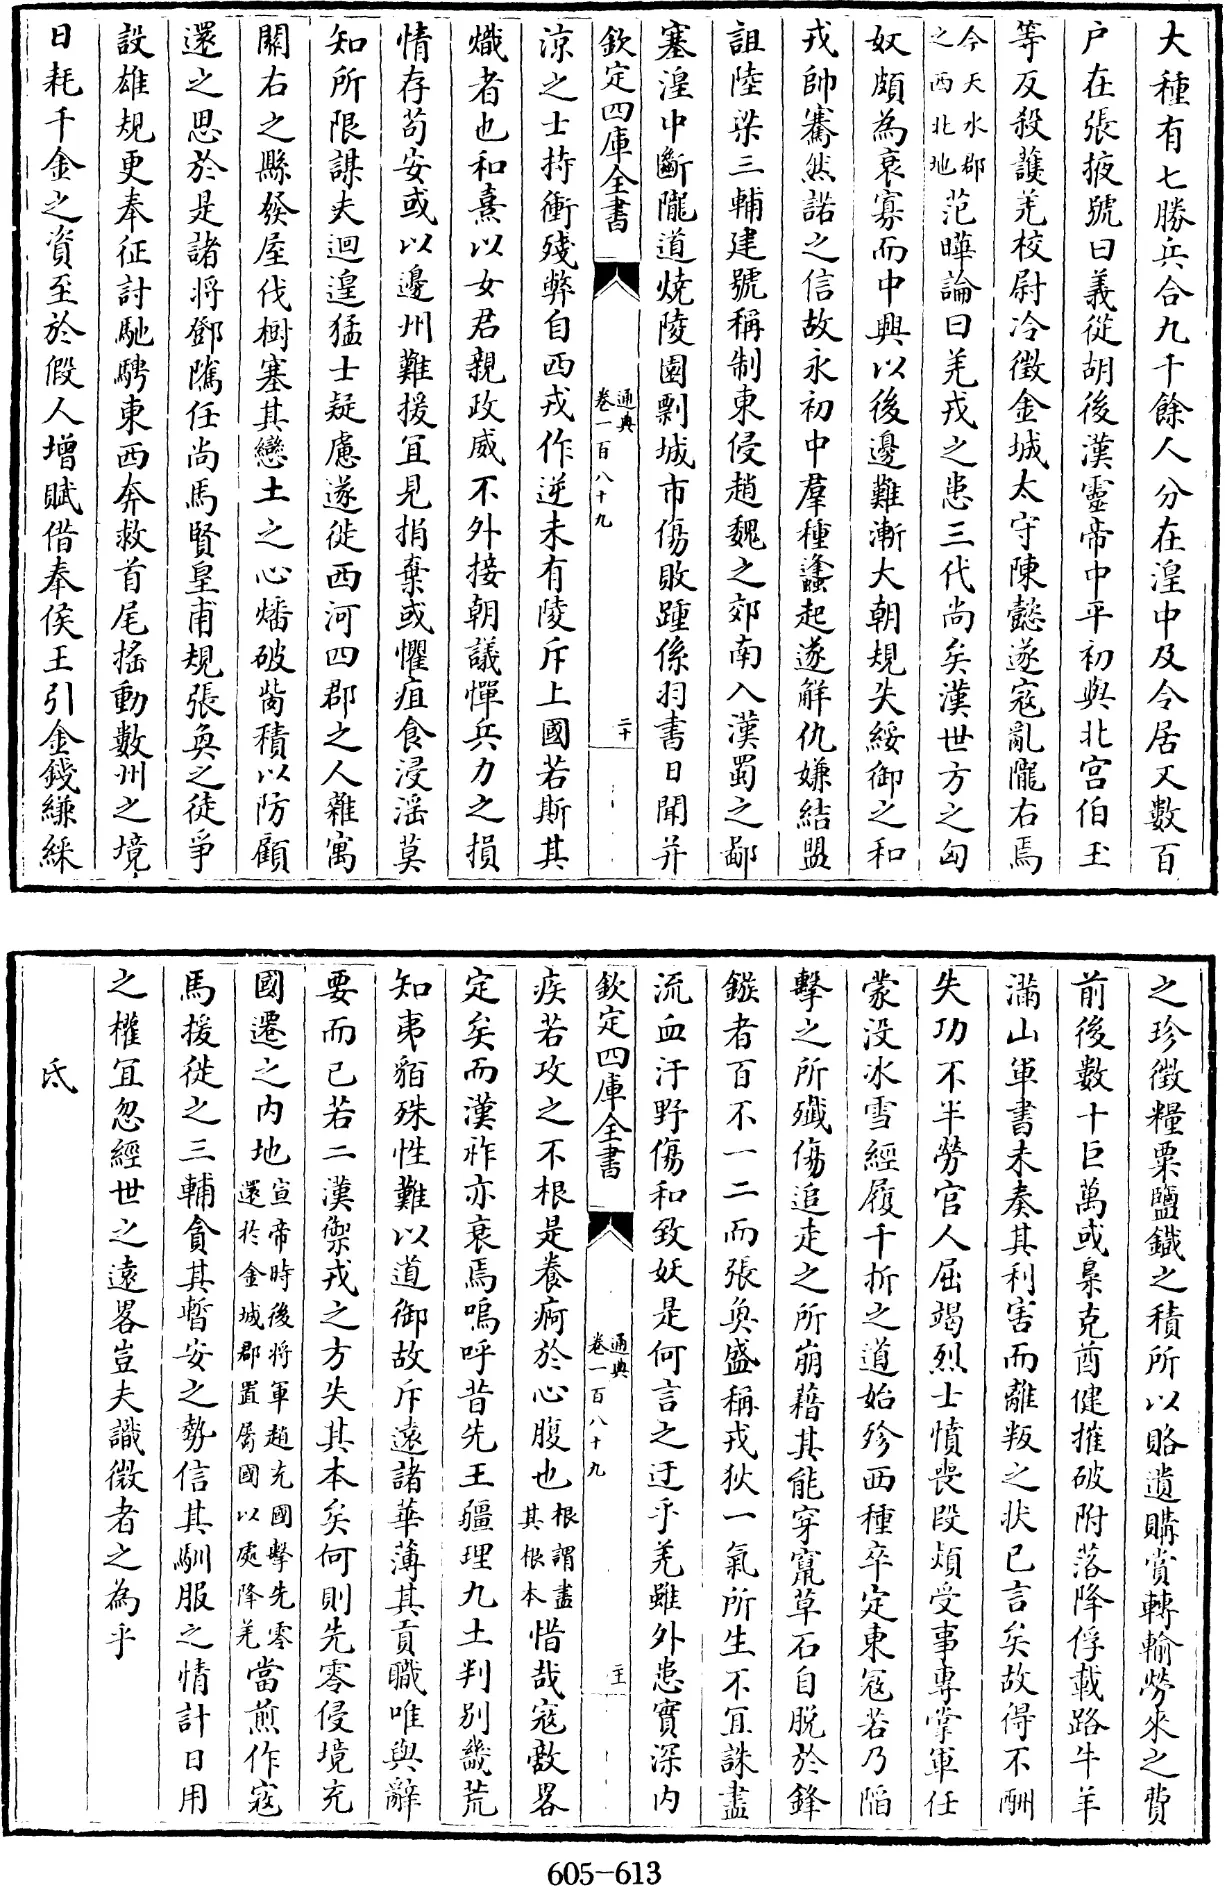 大種有七勝兵合九千餘人分在湟中及令居又數百
户在張掖號曰義從胡後漢靈帝中平初與北宫伯玉
等反殺護羌校尉泠徵金城太守陳懿遂寇亂隴右焉
今天水郡之西北地范曄論曰羌戎之患三代尚矣漢世方之匈
奴頗為衰寡而中興以後邊難漸大朝規失綏御之和
戎帥騫然諾之信故永初中羣種蠭起遂解仇嫌結盟
詛陸梁三輔建號稱制東侵趙魏之郊南入漢蜀之鄙
塞湟中斷隴道燒陵園剽城市傷敗踵係羽書日聞并
欽定四庫全書
通典
卷一百八十九
二十
涼之士持衝殘弊自西戎作逆未有陵斥上國若斯其
熾者也和熹以女君親政威不外接朝議憚兵力之損
情存苟安或以邊州難援宜見捐棄或懼疽食浸滛莫
知所限謀夫迴遑猛士疑慮遂徙西河四郡之人雜寓
關右之縣發屋伐樹塞其戀土之心燔破貲積以防顧
還之思於是諸将鄧隲任尚馬賢皇甫規張奐之徒爭
設雄規更奉征討馳騁東西奔救首尾摇動數州之境
日耗千金之資至於假人增賦借奉侯王引金錢縑綵
之珍徵糧粟鹽鐵之積所以賂遺購賞轉輸勞來之費
前後數十巨萬或梟克酋健摧破附落降俘載路牛羊
滿山軍書未奏其利害而離叛之状已言矣故得不酬
失功不半勞官人屈竭烈士憤喪段熲受事專掌軍任
蒙没冰雪經履千折之道始殄西種卒定東寇若乃陷
擊之所殱傷追走之所崩藉其能穿竄草石自脱於鋒
鏃者百不一二而張奐盛稱戎狄一氣所生不宜誅盡
流血汙野傷和致妖是何言之迂乎羌雖外患實深内
欽定四庫全書
通典
卷一百八十九
二十一
疾若攻之不根是養疴於心腹也根謂盡其根本惜哉寇敵畧
定矣而漢祚亦衰焉嗚呼昔先王疆理九土判别畿荒
知夷貊殊性難以道御故斥遠諸華薄其貢職唯與辭
要而已若二漢禦戎之方失其本矣何則先零侵境充
國遷之内地宣帝時後将軍趙充國擊先零還於金城郡置屬國以處降羌當煎作寇
馬援徙之三輔貪其暫安之勢信其馴服之情計日用
之權宜忽經世之遠畧豈夫識微者之為乎
氐
605-613